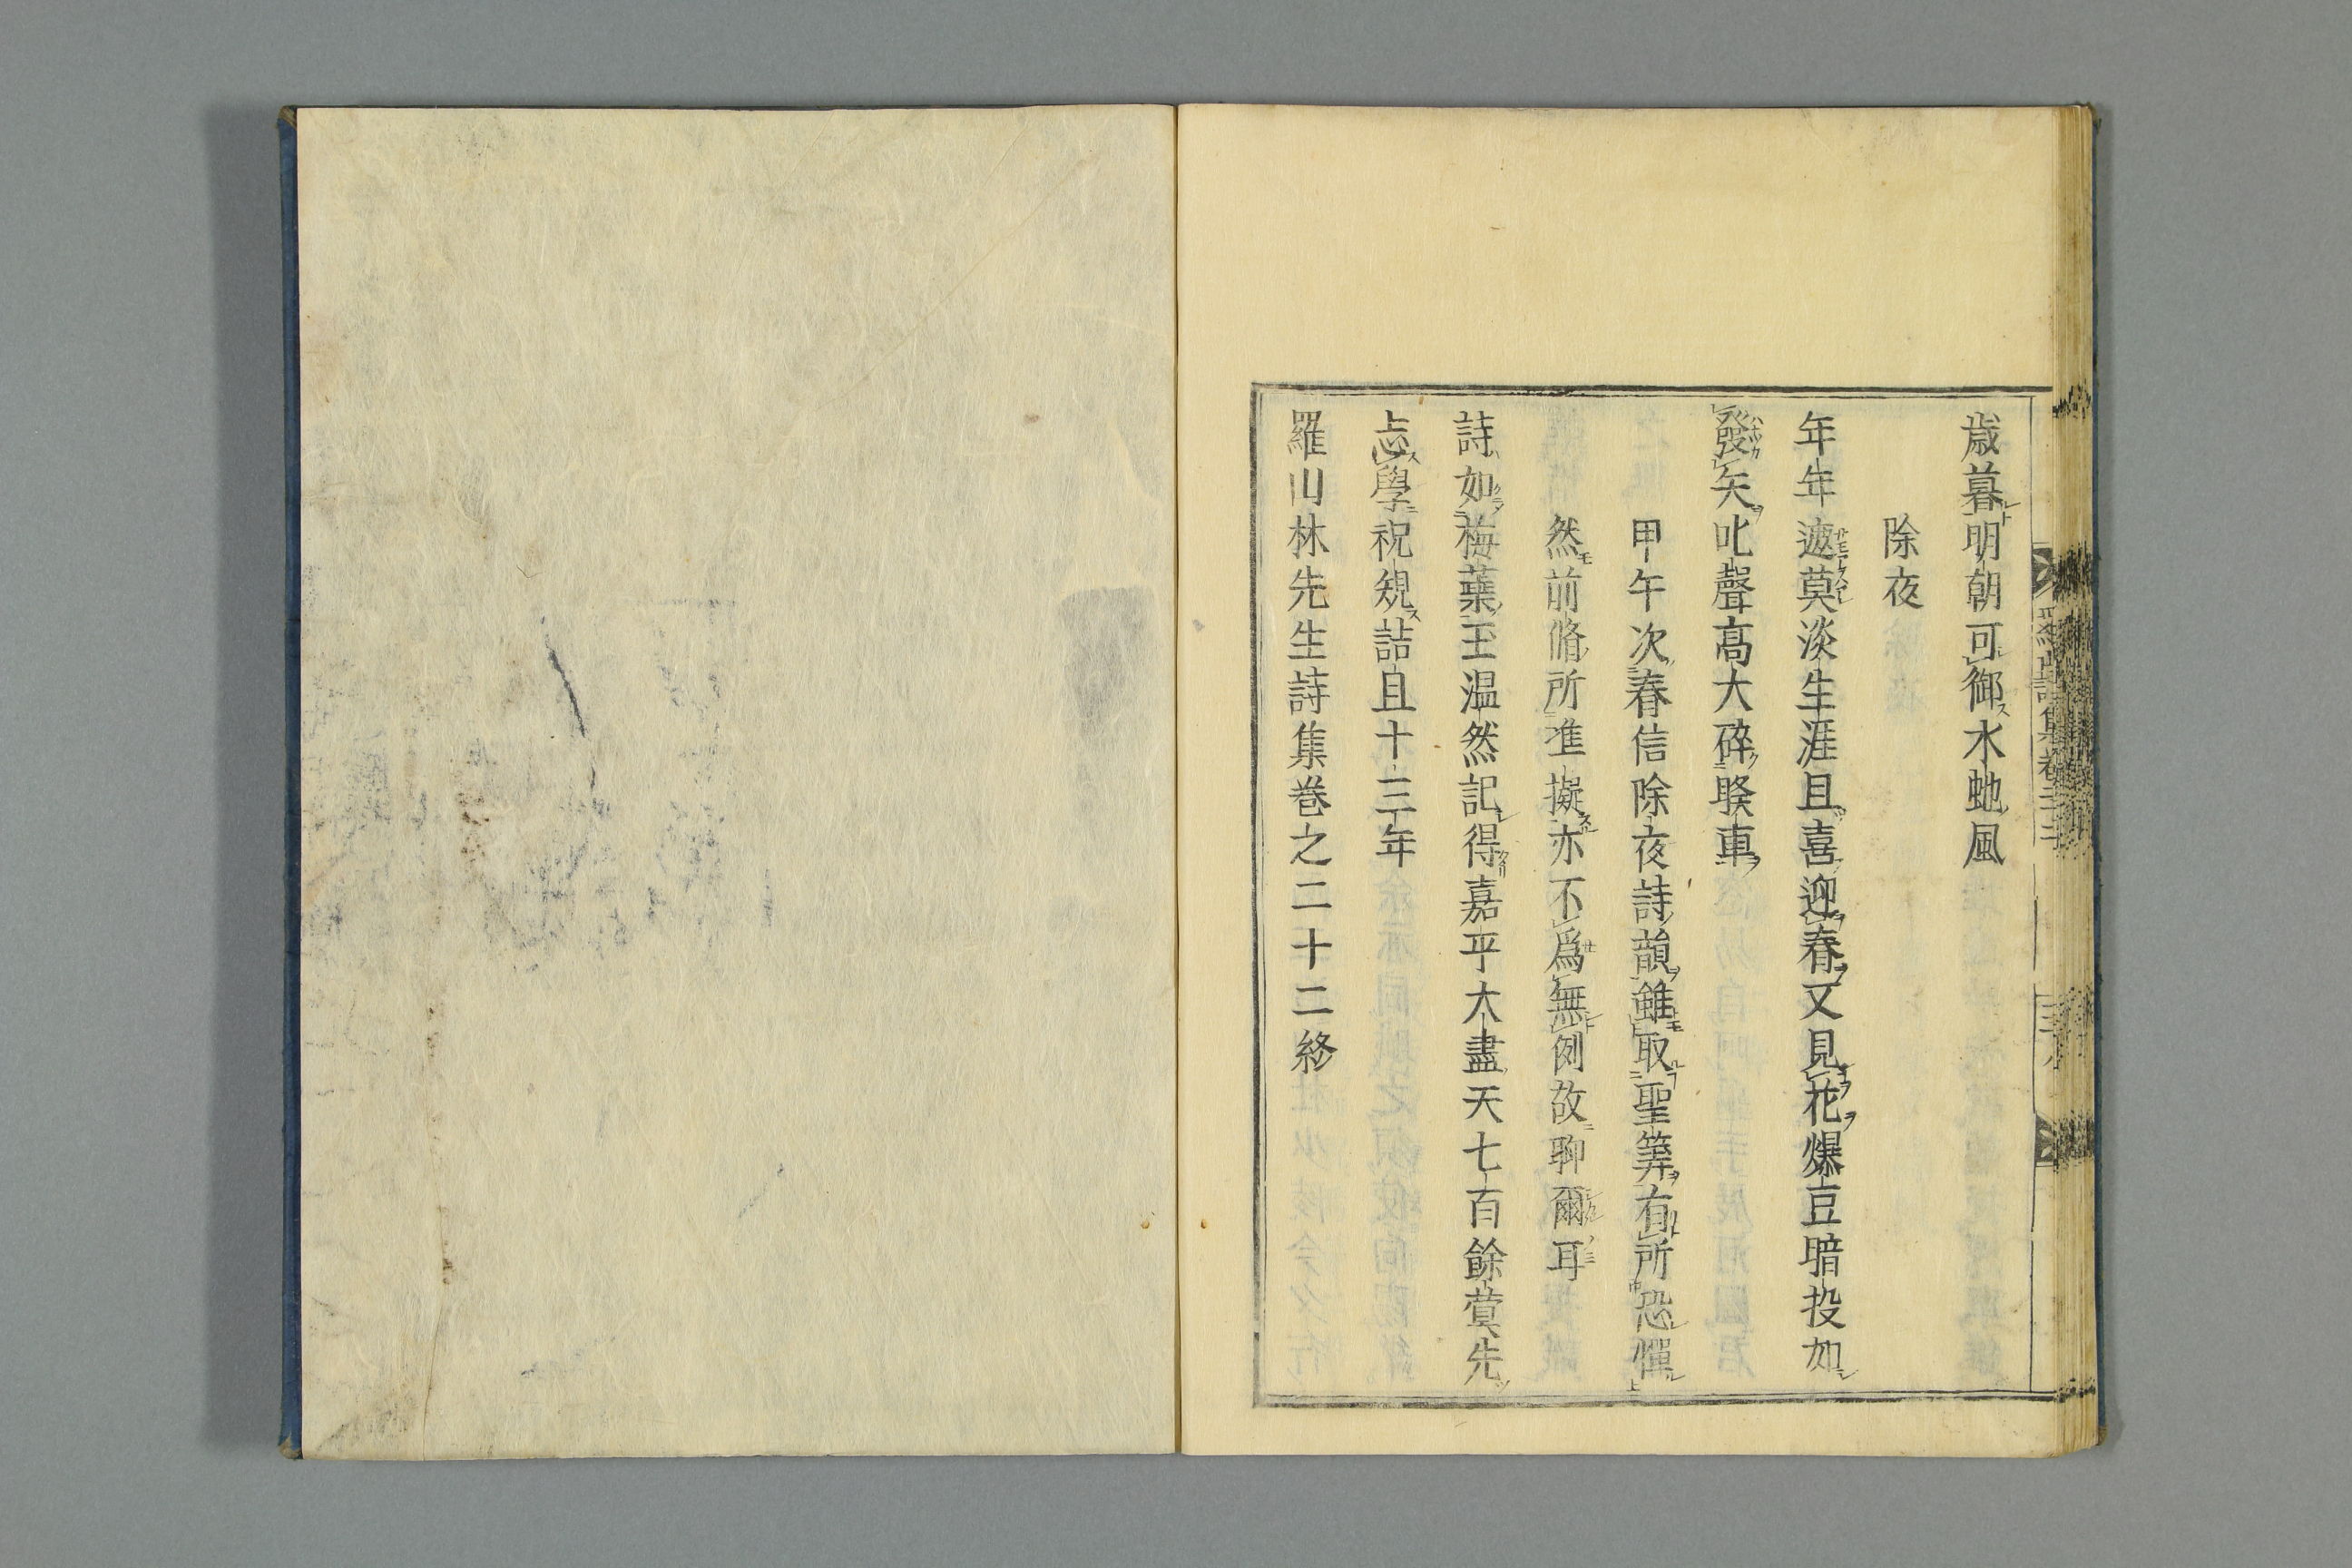 歳暮明朝可御水虵風
除夜
年年遮莫淡生涯且喜迎春又見花爆豆暗投如
發矢叱聲高大碎睽車
甲午次春信除夜詩韻雖取聖筭有所恐憚
然前脩所準擬亦不爲無例故聊爾耳
詩如梅蘂玉温然記得嘉平大盡天七百餘蓂先
忘學祝䂓詰且十三年
羅山林先生詩集巻之二十二終